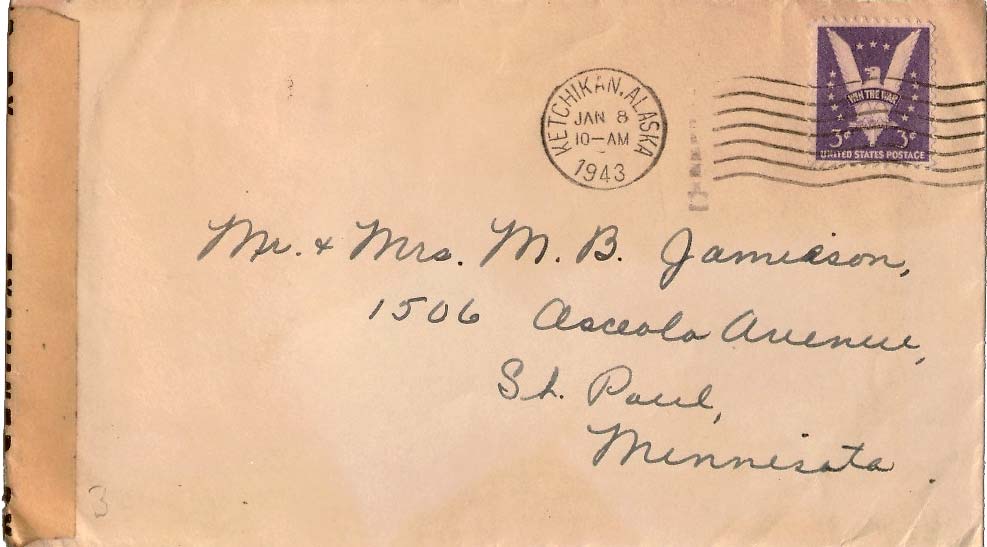 KETCHIKAN, ALASKA
JAN 8
10-AM
1943
WIN THE WAR
3¢ 3¢
UNITED STATES POSTAGE
Mr. & Mrs. M. B. Jamieson,
1506 Asceola Avenue,
St. Paul,
Minnesota
3